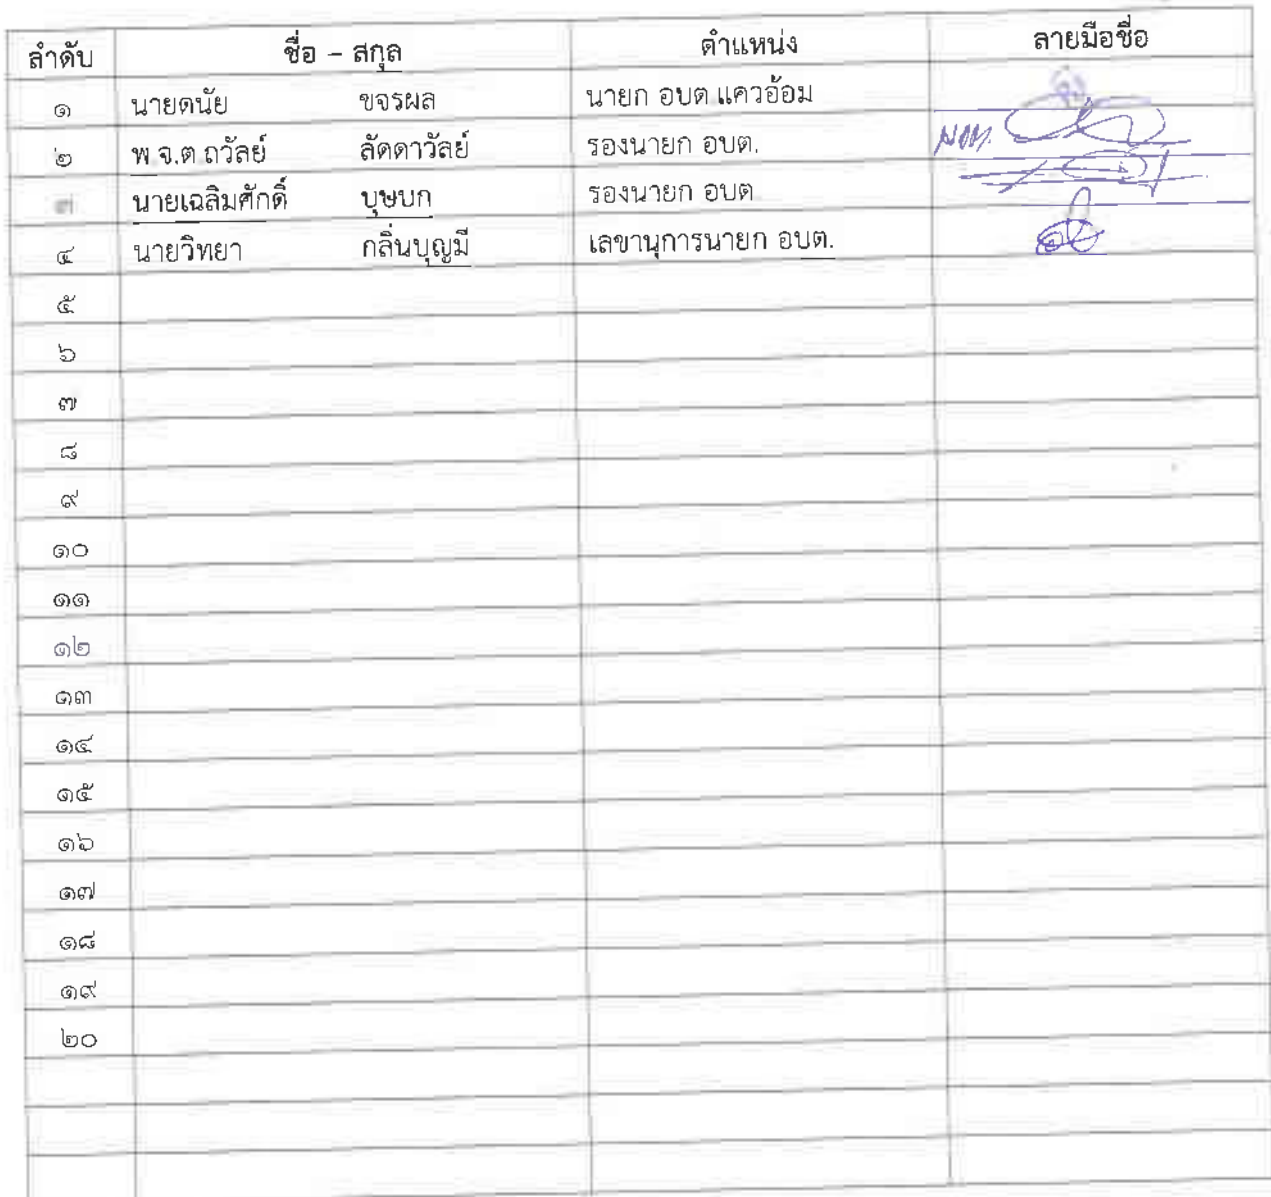 ลำดับ ชื่อ – สกุล ตำแหน่ง ลายมือชื่อ
๑ นายดนัย ขจรผล นายก อบต.แควอ้อม
๒ พ.จ.ต.ถวัลย์ ลัดดาวัลย์ รองนายก อบต.
๓ นายเฉลิมศักดิ์ บุษบก รองนายก อบต.
๔ นายวิทยา กลิ่นบุญมี เลขานุการนายก อบต.
๕
๖
๗
๘
๙
๑๐
๑๑
๑๒
๑๓
๑๔
๑๕
๑๖
๑๗
๑๘
๑๙
๒๐